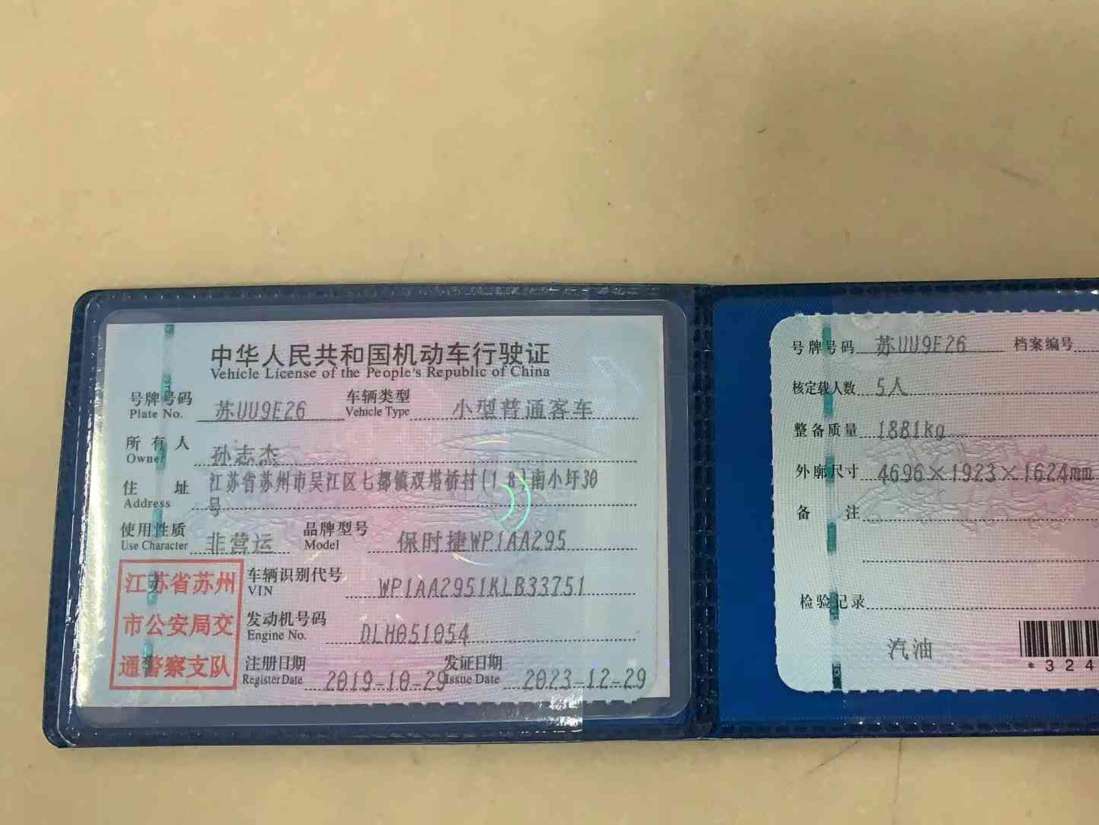 中华人民共和国机动车行驶证
Vehicle License of the People's Republic of China
号牌号码 苏UU9E26 车辆类型 小型普通客车
Plate No. Vehicle Type
所有人 孙志杰
Owner
住址 江苏省苏州市吴江区七都镇双塔桥村(18)南小圩30
Address 号
使用性质 非营运 品牌型号 保时捷WP1AA295
Use Character Model
江苏省苏州
市公安局交
通警察支队
车辆识别代号 WP1AA2951KLB33751
VIN
发动机号码 DLH051054
Engine No.
注册日期 2019-10-29 发证日期 2023-12-29
Register Date Issue Date
号牌号码 苏UU9E26 档案编号
核定载人数 5人
整备质量 1881kg
外廓尺寸 4696×1923×1624mm
备注
检验记录
汽油
*324